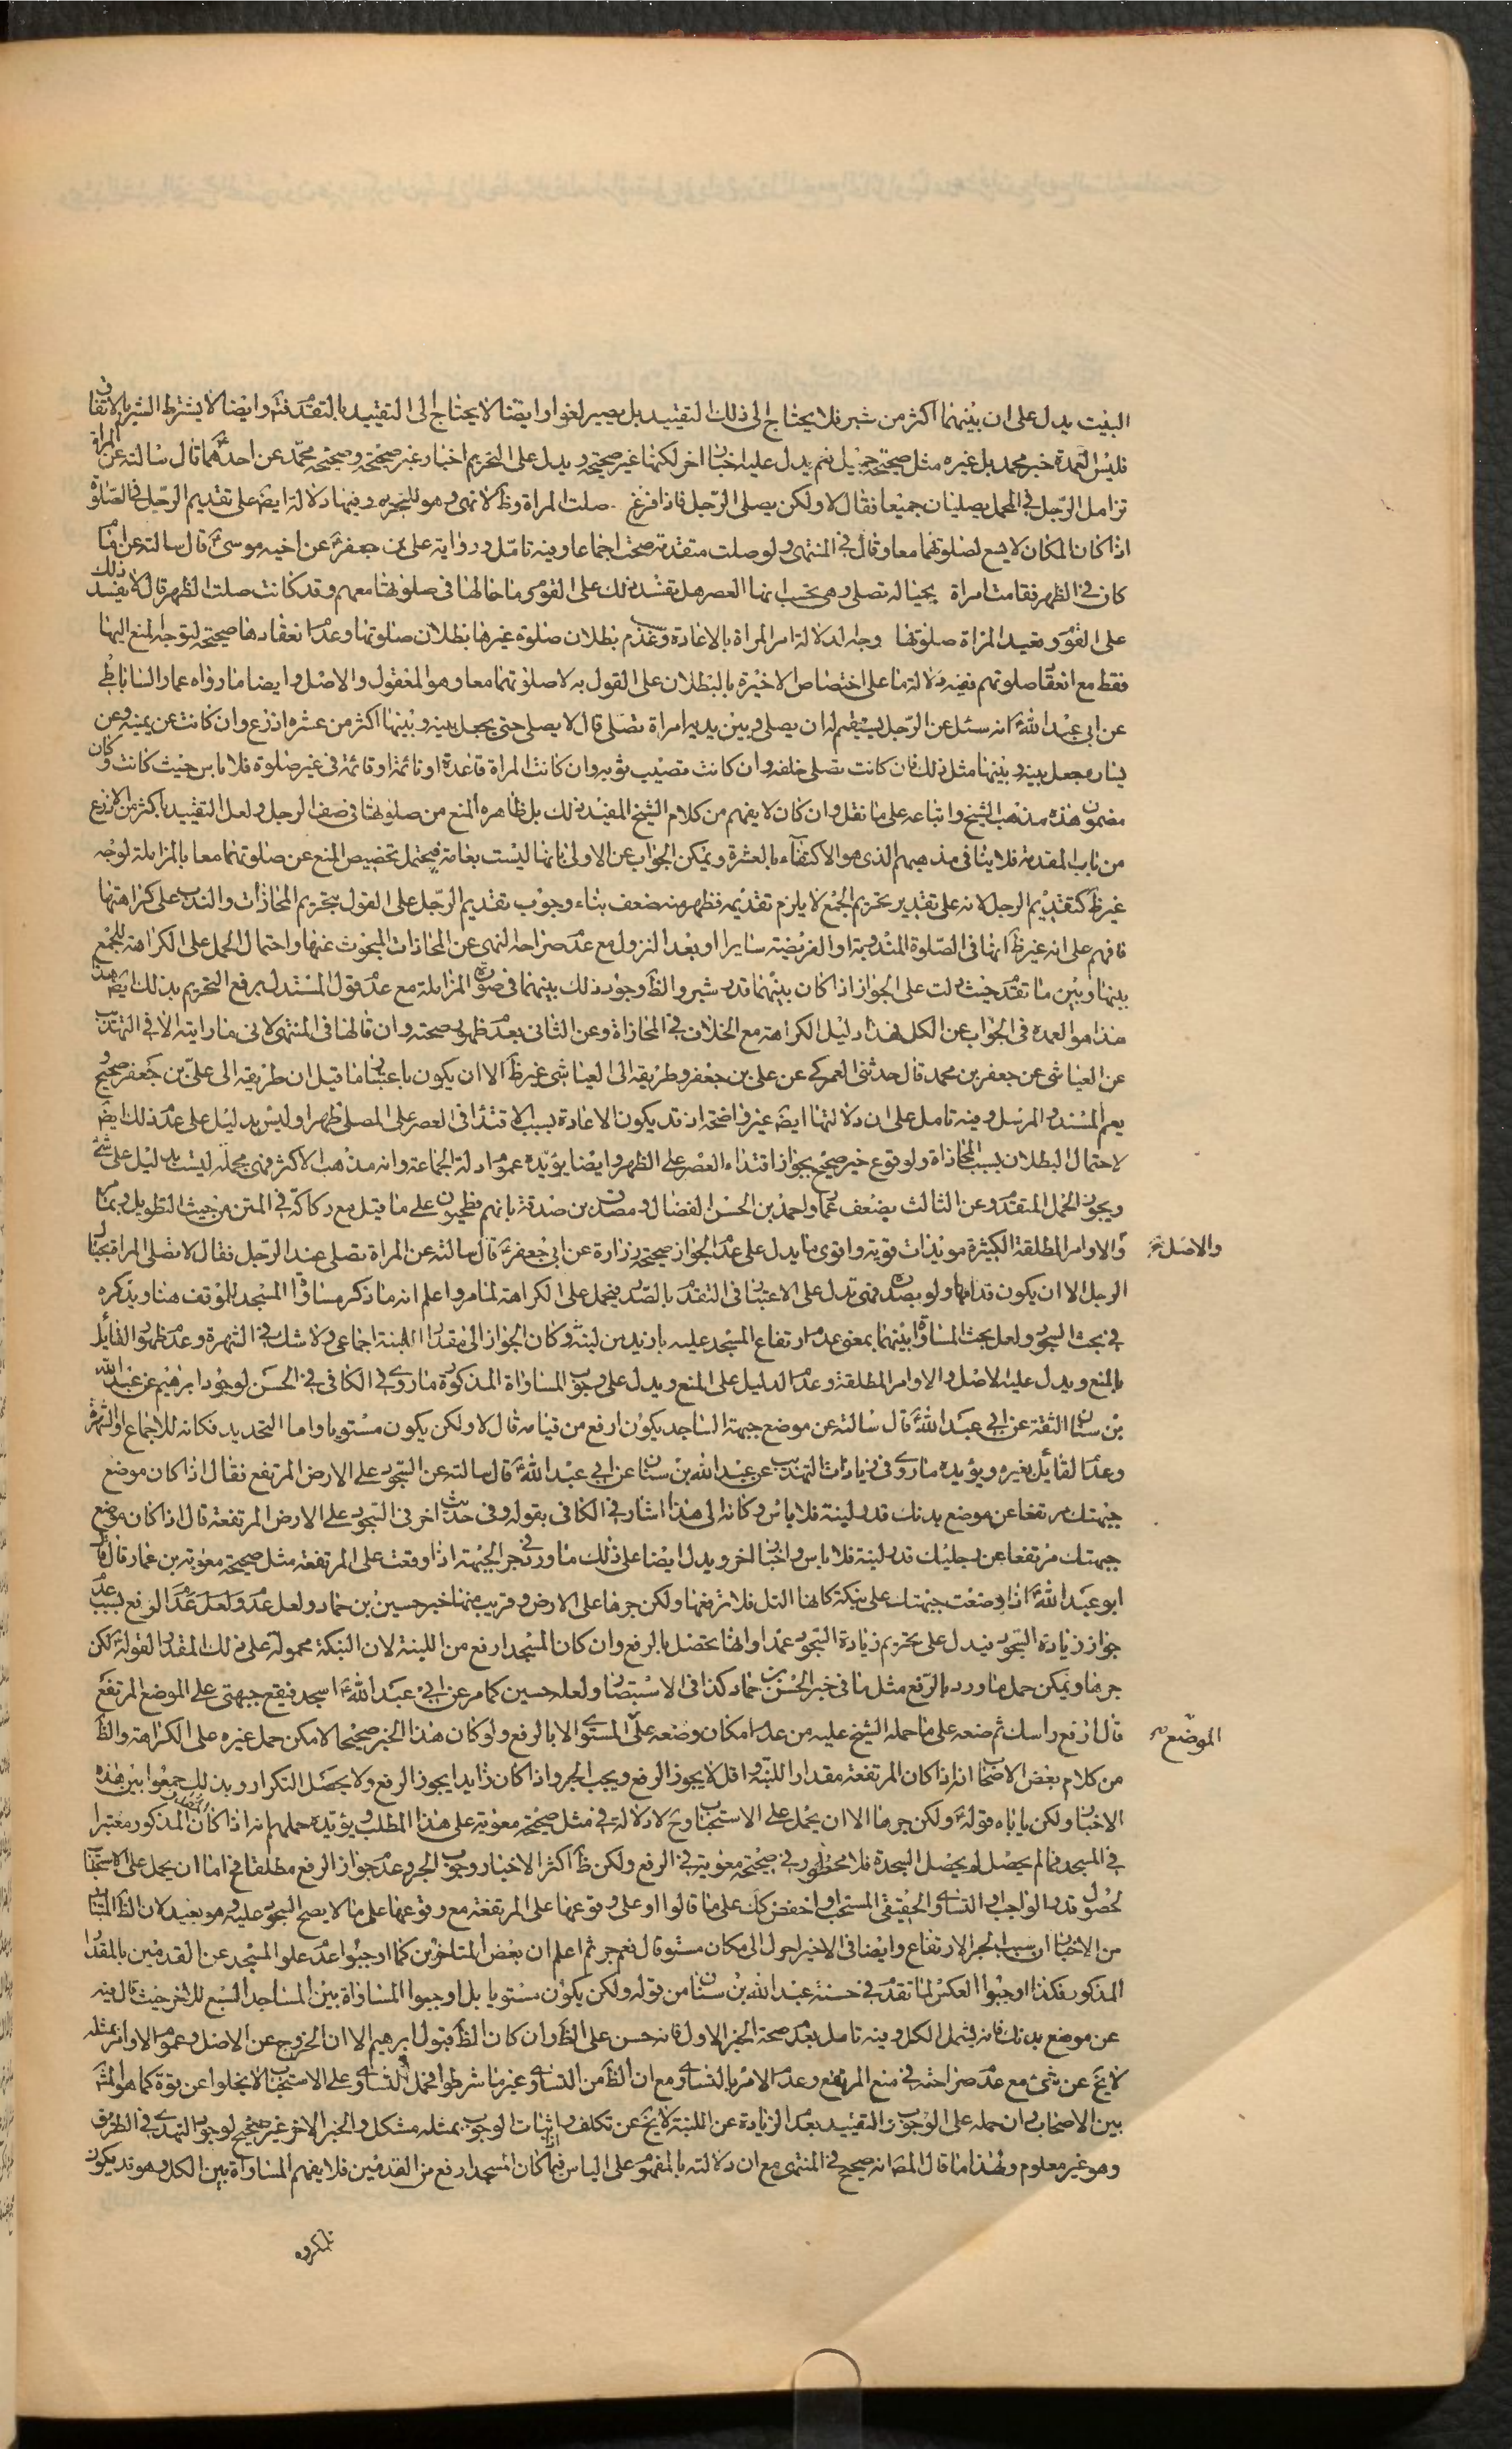 البيت يدل على ان بينهما اكثر من شبر فلا يحتاج الى ذلك التقييد بل يصير لغوا وايضا لا يحتاج الى التقييد بالتقدم فتم وايضا لا يشترط الشبر بالاتفاق
فليس العمدة خبر محمد بل غيره مثل صحيحة جميل نعم يدل عليه اخبار اخر لكنها غير صحيحة ويدل على التحريم اخبار غير صحيحة وصحيحة محمد عن احدهما قال سالته عن المراة
تزامل الرجل في المحمل يصليان جميعا فقال لا ولكن يصلى الرجل فاذا فرغ صلت المراة وظ لا نهى وهو للتحريم وفيها دلالة ايضا على تقديم الرجل في الصلوة
اذا كان المكان لا يسع لصلوتهما معا وقال في المنتهى ولو صلت متقدمة صحت اجماعا وفيه تامل ورواية على بن جعفر عن اخيه موسى قال سالته عن امام
كان في الظهر فقامت امراة بحياله تصلى وهى تحسب انها العصر هل يفسد ذلك على القوم وما حالها في صلوتها معهم وقد كانت صلت الظهر قال لا يفسد ذلك
على القوم وتعيد المراة صلوتها وجه الدلالة امر المراة بالاعادة وعدم بطلان صلوة غيرها بطلان صلوتها وعدم انعقادها صحيحة لتوجه المنع اليها
فقط مع انعقاد صلوتهم ففيه دلالة ما على اختصاص الاخيرة بالبطلان على القول به لا صلوتهما معا وهو المنقول والاصل وايضا ما رواه عمار الساباطي
عن ابى عبد الله انه سئل عن الرجل يستقيم له ان يصلى وبين يديه امراة تصلى قال لا يصلى حتى يجعل بينه وبينها اكثر من عشرة اذرع وان كانت عن يمينه وعن
يساره جعل بينه وبينها مثل ذلك فان كانت تصلى خلفه وان كانت تصيب ثوبه وان كانت المراة قاعدة او نائمة او قائمة في غير صلوة فلا باس حيث كانت وكان
مضمون هذه مذهب الشيخ واتباعه على ما نقل وان كان لا يفهم من كلام الشيخ المفيد ذلك بل ظاهره المنع من صلوتها في صف الرجل ولعل التقييد باكثر من الاذرع
من باب المقدمة فلا ينافى مذهبهم الذى هو الاكتفاء بالعشرة ويمكن الجواب عن الاولى بانها ليست بعامة فيحتمل تخصيص المنع عن صلوتهما معا بالمزاملة لوجه
غير ظ كتقديم الرجل لانه على تقدير تحريم الجمع لا يلزم تقديمه فظهر منه ضعف بناء وجوب تقديم الرجل على القول بتحريم المحاذات والندب على كراهتها
فافهم على انه غير ظ انها في الصلوة المندوبة او الفريضة سايرا او بعد النزول مع عدم صراحة النهى عن المحاذات المبحوث عنها واحتمال الحمل على الكراهة للجمع
بينها وبين ما تقدم حيث دلت على الجواز اذا كان بينهما قدر شبر والظ وجود ذلك بينهما في صورة المزاملة مع عدم قول المستدل برفع التحريم بذلك ايضا هذا
هذا هو العمدة في الجواب عن الكل فهذا دليل الكراهة مع الخلاف في المحاذاة وعن الثانى بعدم ظهور صحته وان قالها في المنتهى لانى ما رايته الا في التهذيب
عن العياشى عن جعفر بن محمد قال حدثنى العمركي عن على بن جعفر وطريقه الى العياشى غير ظ الا ان يكون باعتبار ما قيل ان طريقه الى على بن جعفر صحيح و
يعم المسند والمرسل وفيه تامل على ان دلالتها ايضا غير واضحة اذ قد يكون الاعادة بسبب الاقتداء في العصر على المصلى ظهرا وليس بدليل على عدم ذلك ايضا
لاحتمال البطلان بسبب المحاذاة ولوقوع خبر صحيح بجواز اقتداء العصر على الظهر وايضا يؤيده عموم ادلة الجماعة وانه مذهب الاكثر فهى مجملة ليست بدليل على شئ
ويجوز الحمل المتقدم وعن الثالث بضعف عمار واحمد بن الحسن الفضال ومصدق بن صدقة بانهم فطحيون على ما قيل مع ركاكة في المتن من حيث التطويل وبما
والاوامر المطلقة الكثيرة مويدات قوية واقوى ما يدل على عدم الجواز صحيحة زرارة عن ابى جعفر قال سالته عن المراة تصلى عند الرجل فقال لا تصلى المراة بحيال
والاصل
الرجل الا ان يكون قدامها ولو بصدره فهى تدل على الاعتبار في التقدم بالصدر فيحمل على الكراهة لما مر واعلم انه ما ذكر مساواة المسجد للموقف هنا ويذكره
في بحث السجود ولعل بحث المساواة بينهما بمعنى عدم ارتفاع المسجد عليه بازيد من لبنة وكان الجواز الى مقدار اللبنة اجماعى ولا شك في الشهرة وعدم ظهور القايل
بالمنع ويدل عليه الاصل والاوامر المطلقة وعدم الدليل على المنع ويدل على وجوب المساواة المذكورة ما روى في الكافى في الحسن لوجود ابرهيم عن عبد الله
بن سنان الثقة عن ابى عبد الله قال سالته عن موضع جبهة الساجد يكون ارفع من قيامه قال لا ولكن يكون مستويا واما التحديد فكانه للاجماع او الشهرة
وعدم القايل بغيره ويؤيده ما روى في زيادات التهذيب عن عبد الله بن سنان عن ابى عبد الله قال سالته عن السجود على الارض المرتفع فقال اذا كان موضع
جبهتك مرتفعا عن موضع بدنك قدر لبنة فلا باس وكانه الى هذا اشار في الكافى بقوله وفى حديث اخر في السجود على الارض المرتفعة قال اذا كان موضع
جبهتك مرتفعا عن رجليك قدر لبنة فلا باس واخبار اخر ويدل ايضا على ذلك ما ورد في جر الجبهة اذا وقعت على المرتفعة مثل صحيحة معوية بن عمار قال قال
ابو عبد الله اذا وضعت جبهتك على نبكة كانها التل فلا ترفعها ولكن جرها على الارض وقريب منها خبر حسين بن حماد ولعل عدم ولعل عدم الرفع لسبب عدم
جواز زيادة السجود فيدل على تحريم زيادة السجود عمدا وانها تحصل بالرفع وان كان المسجد ارفع من اللبنة لان النبكة محمولة على ذلك المقدار لقوله لكن
جرها ويمكن حمل ما ورد بالرفع مثل ما في خبر الحسن بن حماد كذا في الاستبصار ولعله حسين كما مر عن ابى عبد الله اسجد فيقع جبهتى على الموضع المرتفع
قال ارفع راسك ثم ضعه على ما حمله الشيخ عليه من عدم امكان وضعه على المستوى الا بالرفع ولو كان هذا الخبر صحيحا لامكن حمل غيره على الكراهة والظ
الموضع
من كلام بعض الاصحاب انه اذا كان المرتفعة مقدار اللبنة واقل لا يجوز الرفع ويجب الجر واذا كان زايدا يجوز الرفع ولا يحصل التكرار وبذلك جمعوا بين هذه
الاخبار ولكن ياباه قوله ولكن جرها الا ان يحمل على الاستحباب وح لا دلالة في مثل صحيحة معوية على هذا المطلب ويؤيده حملهم انه اذا كان المذكور معتبرا
في المسجد فما لم يحصل لم يحصل السجدة فلا محظور في صحيحة معوية في الرفع ولكن ظ اكثر الاخبار وجوب الجر وعدم جواز الرفع مطلقا فح اما ان يحمل على الاستحباب
لحصول قدر الواجب والتساوى الحقيقى المستحب او اخفض كك على ما قالوا او على وقوعها على المرتفعة مع وقوعها على ما لا يصح السجود عليه وهو بعيد لان الظ المتبادر
من الاخبار ان سبب الجر الارتفاع وايضا في الاخير احول الى مكان مستو قال نعم جر ثم اعلم ان بعض المتاخرين كما اوجبوا عدم علو المسجد عن القدمين بالمقدار
المذكور فكذا اوجبوا العكس لما تقدم في حسنة عبد الله بن سنان من قوله ولكن يكون مستويا بل اوجبوا المساواة بين المساجد السبع للاخر حيث قال فيه
عن موضع بدنك فانه يشمل الكل وفيه تامل بعدم صحة الخبر الاول فانه حسن على الظ وان كان الظ قبول ابرهيم الا ان الخروج عن الاصل وعموم الاوامر بمثله
لا يخ عن شئ مع عدم صراحته في منع المرتفع وعدم الامر بالتساوى مع ان الظ من التساوى غير ما شرطوا فحمل التساوى على الاستحباب لا يخلوا عن قوة كما هو المشهور
بين الاصحاب وان حمله على الوجوب والتقييد بعدم الزيادة عن اللبنة لا يخ عن تكلف واثبات الوجوب بمثله مشكل والخبر الاخر غير صحيح لوجود النهدى في الطريق
وهو غير معلوم ولهذا ما قال المصا انه صحيح في المنتهى مع ان دلالته بالمفهوم على الباس فيما كان المسجد ارفع من القدمين فلا يفهم المساواة بين الكل وهو قد يكون